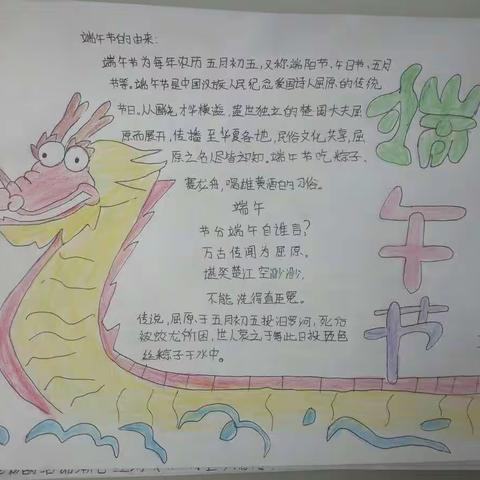 端午节的由来:
端午节为每年农历五月初五,又称端阳节、午日节、五月
节等。端午节是中国汉族人民纪念爱国诗人屈原的传统
节日。从围绕才华横益、遗世独立的楚国大夫屈
原而展开,传播至华夏各地,民俗文化共享,屈
原之名人尽皆知,端午节吃粽子、
赛龙舟,喝雄黄酒的习俗。
端午
节分端午自谁言?
万古传闻为屈原。
堪笑楚江空渺渺,
不能洗得直臣冤。
传说,屈原于五月初五投汨罗河,死后
被蛟龙所困,世人哀之于每此日投五色
丝粽子于水中。
端
午
节